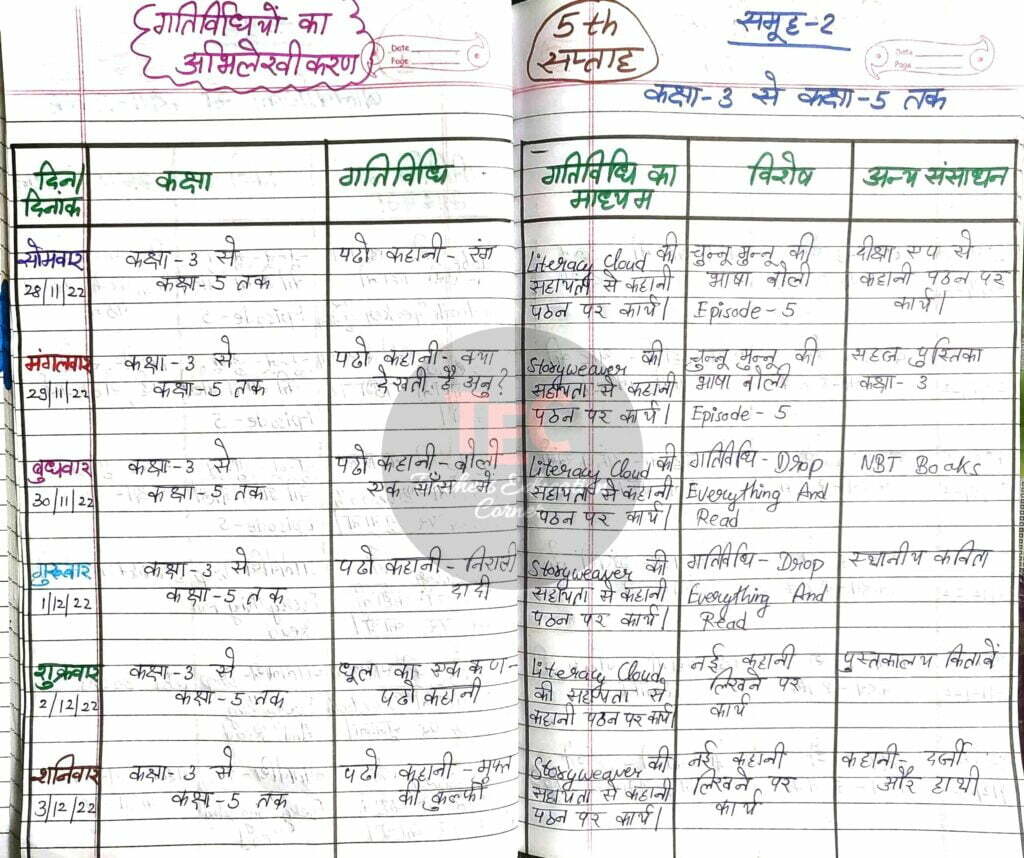 गतिविधियों का
अभिलेखीकरण
Date
Page
5th
सप्ताह
समूह-2
Date
Page
कक्षा-3 से कक्षा-5 तक
दिन/
दिनांक
कक्षा
गतिविधि
गतिविधि का
माध्यम
विशेष
अन्य संसाधन
सोमवार
28/11/22
कक्षा-3 से
कक्षा-5 तक
पढो कहानी- रंग
Literacy Cloud की
सहायता से कहानी
पठन पर कार्य।
चुन्नू मुन्नू की
भाषा बोली
Episode-5
दीक्षा एप से
कहानी पठन पर
कार्य।
मंगलवार
29/11/22
कक्षा-3 से
कक्षा-5 तक
पढो कहानी- क्या
देखती है अनु?
Storyweaver की
सहायता से कहानी
पठन पर कार्य।
चुन्नू मुन्नू की
भाषा बोली
Episode-5
सहल पुस्तिका
कक्षा-3
बुधवार
30/11/22
कक्षा-3 से
कक्षा-5 तक
पढो कहानी- बोलो
एक साँस में
Literacy Cloud की
सहायता से कहानी
पठन पर कार्य।
गतिविधि- Drop
Everything And
Read
NBT Books
गुरुवार
1/12/22
कक्षा-3 से
कक्षा-5 तक
पढो कहानी- निराली
दादी
Storyweaver की
सहायता से कहानी
पठन पर कार्य।
गतिविधि- Drop
Everything And
Read
स्थानीय कविता
शुक्रवार
2/12/22
कक्षा-3 से
कक्षा-5 तक
धूल का एक कण-
पढो कहानी
Literacy Cloud
की सहायता से
कहानी पठन पर कार्य।
नई कहानी
लिखने पर
कार्य
पुस्तकालय किताबें
शनिवार
3/12/22
कक्षा-3 से
कक्षा-5 तक
पढो कहानी- मुफ्त
की कुल्फी
Storyweaver की
सहायता से कहानी
पठन पर कार्य।
नई कहानी
लिखने पर
कार्य
कहानी- दर्जी
और हाथी
TEC
Teachers Educational
Corner